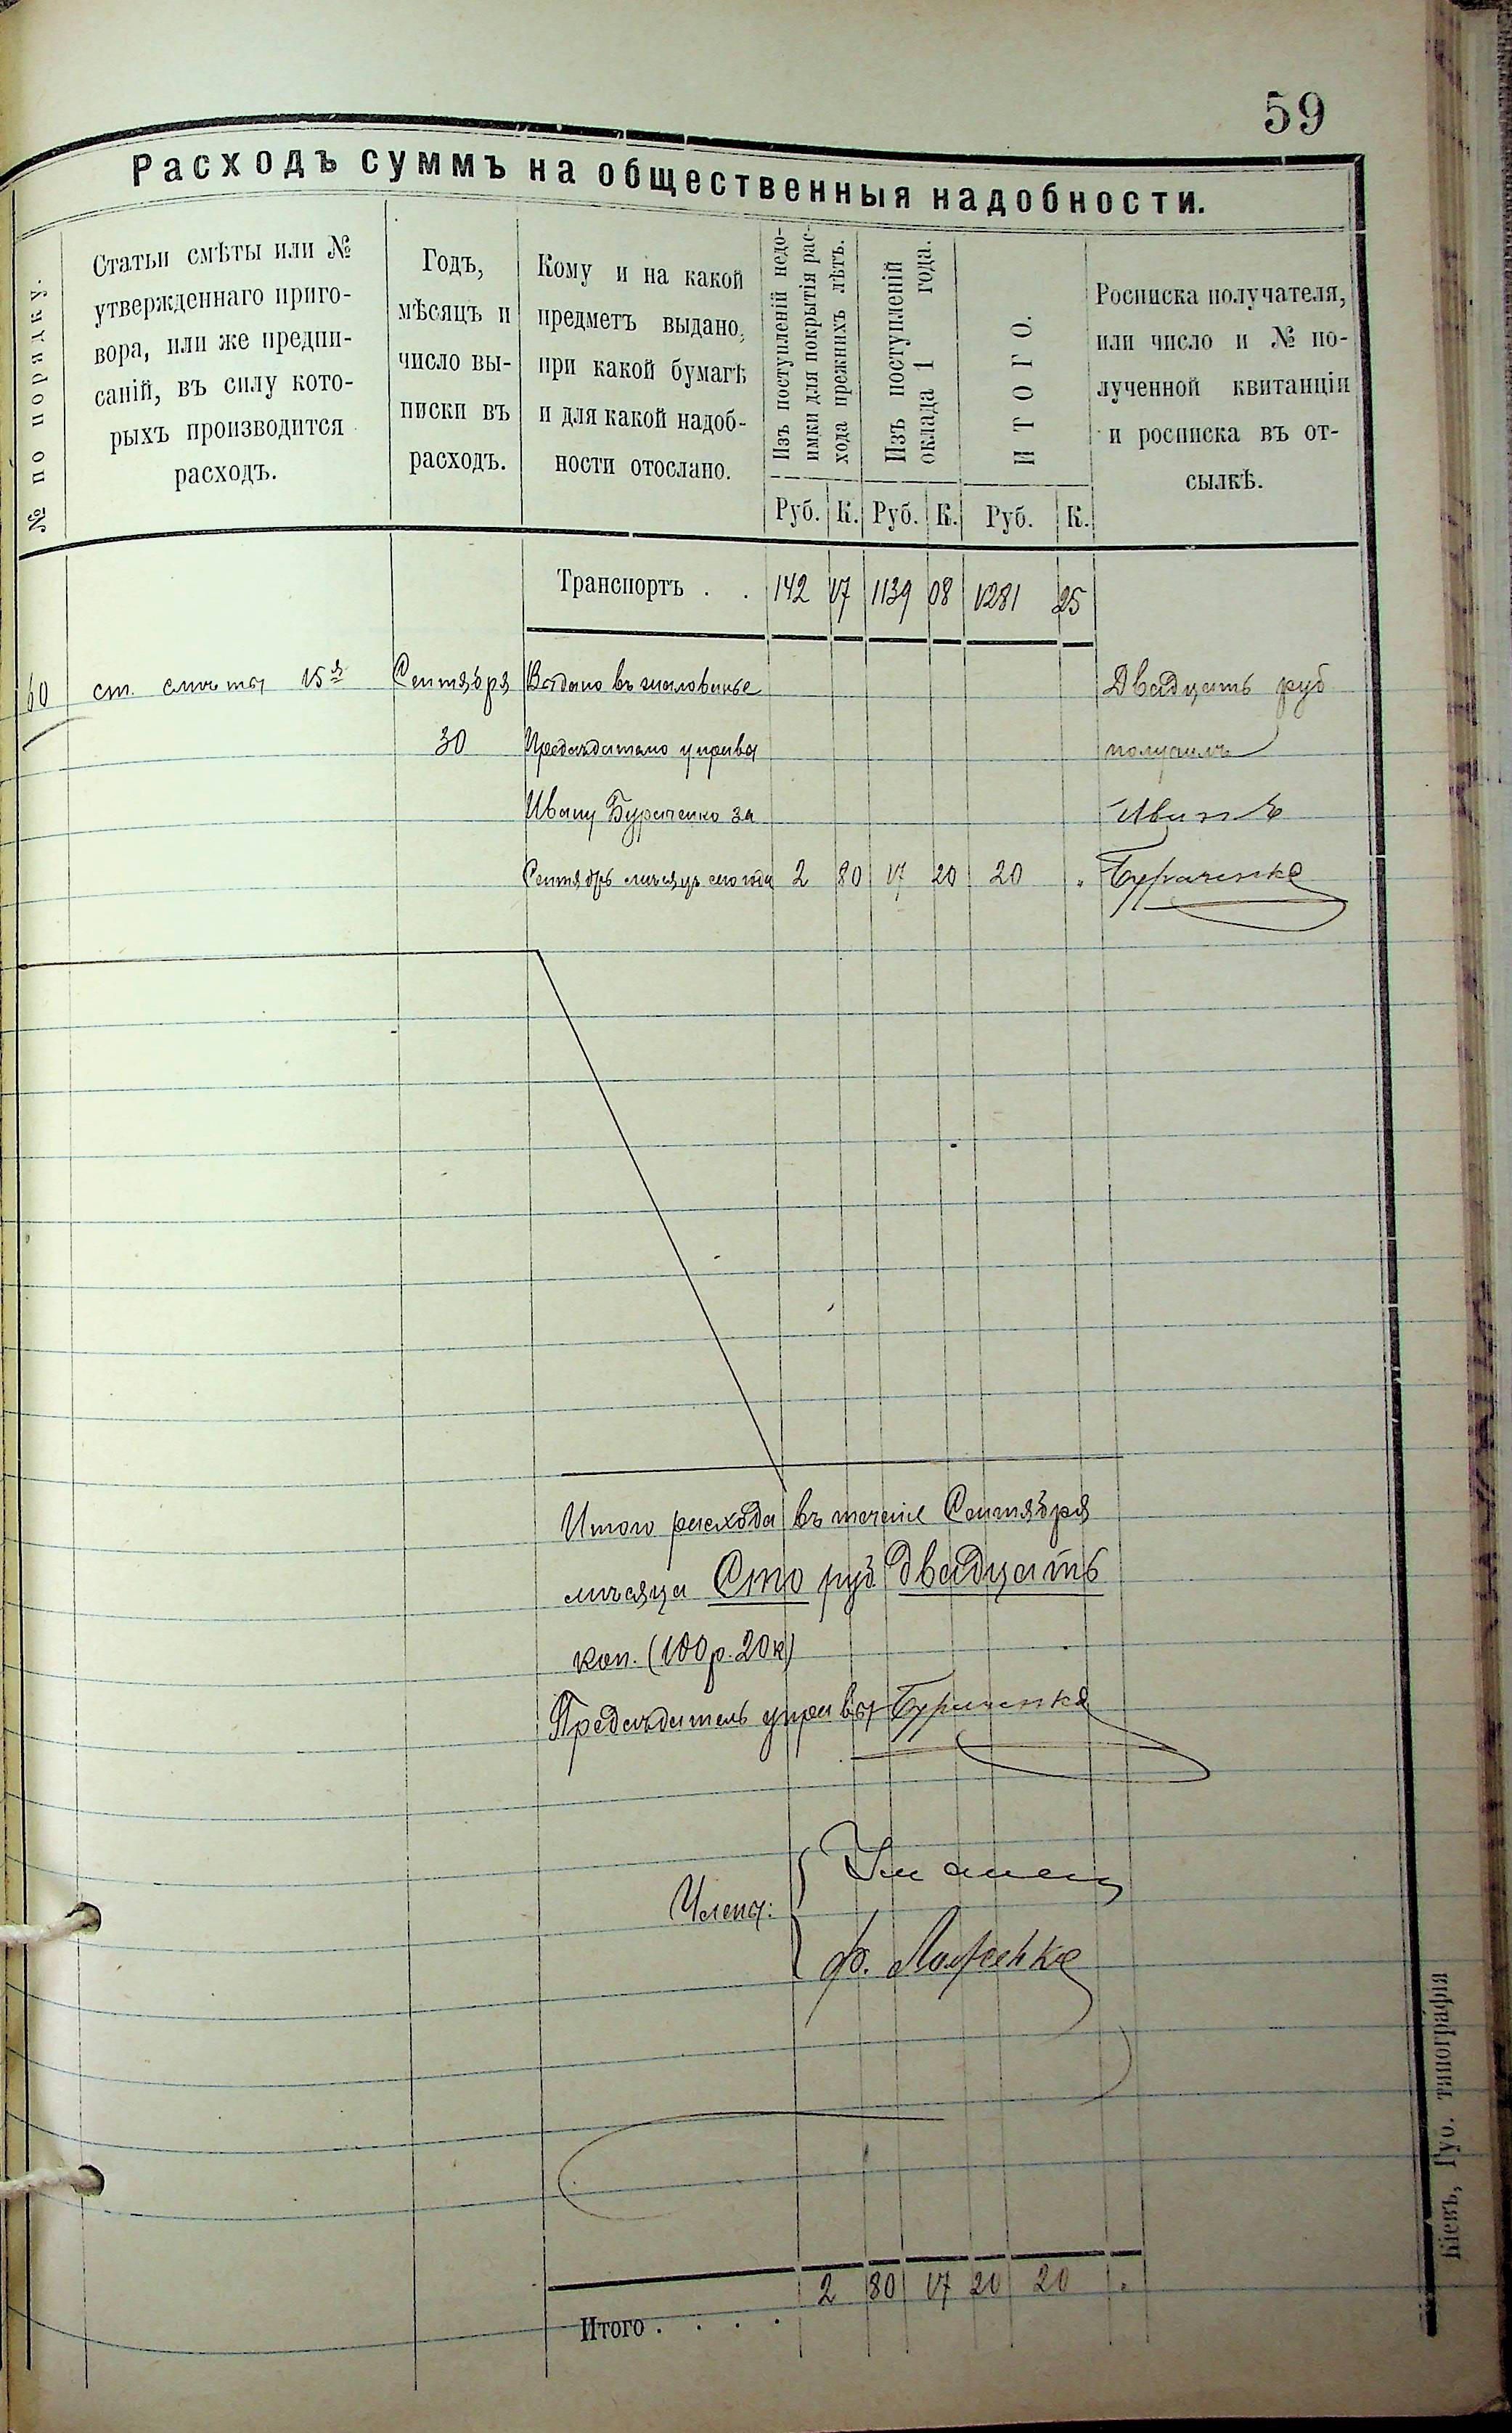 59
Расходъ суммъ на общественныя надобности.
№ по порядку.
Статьи смѣты или №
утвержденнаго приго-
вора, или же предпи-
саній, въ силу кото-
рыхъ производится
расходъ.
Годъ,
мѣсяцъ и
число вы-
писки въ
расходъ.
Кому и на какой
предметъ выдано,
при какой бумагѣ
и для какой надоб-
ности отослано.
Изъ поступленій недо-
имки для покрытія рас-
хода прежнихъ лѣтъ.
Изъ поступленій
оклада 1 года.
ИТОГО.
Росписка получателя,
или число и № по-
лученной квитанціи
и росписка въ от-
сылкѣ.
Руб. К. Руб. К. Руб. К.
Транспортъ . . 142 17 1139 08 1281 25
60 ст. смѣты 15я Сентября Выдано въ жалованье Двадцать руб
30 Предсѣдателю управы получилъ
Ивану Бураченко за Иванъ
Сентябрь мѣсяцъ сего года 2 80 17 20 20 „ Бураченко
Итого расхода въ теченіе Сентября
мѣсяца Сто руб двадцать
коп. (100 р. 20 к)
Предсѣдатель управы Бураченко
Члены:
Ф.
2 80 17 20 20 „
Итого . . . .
Кіевъ, Губ. типографія